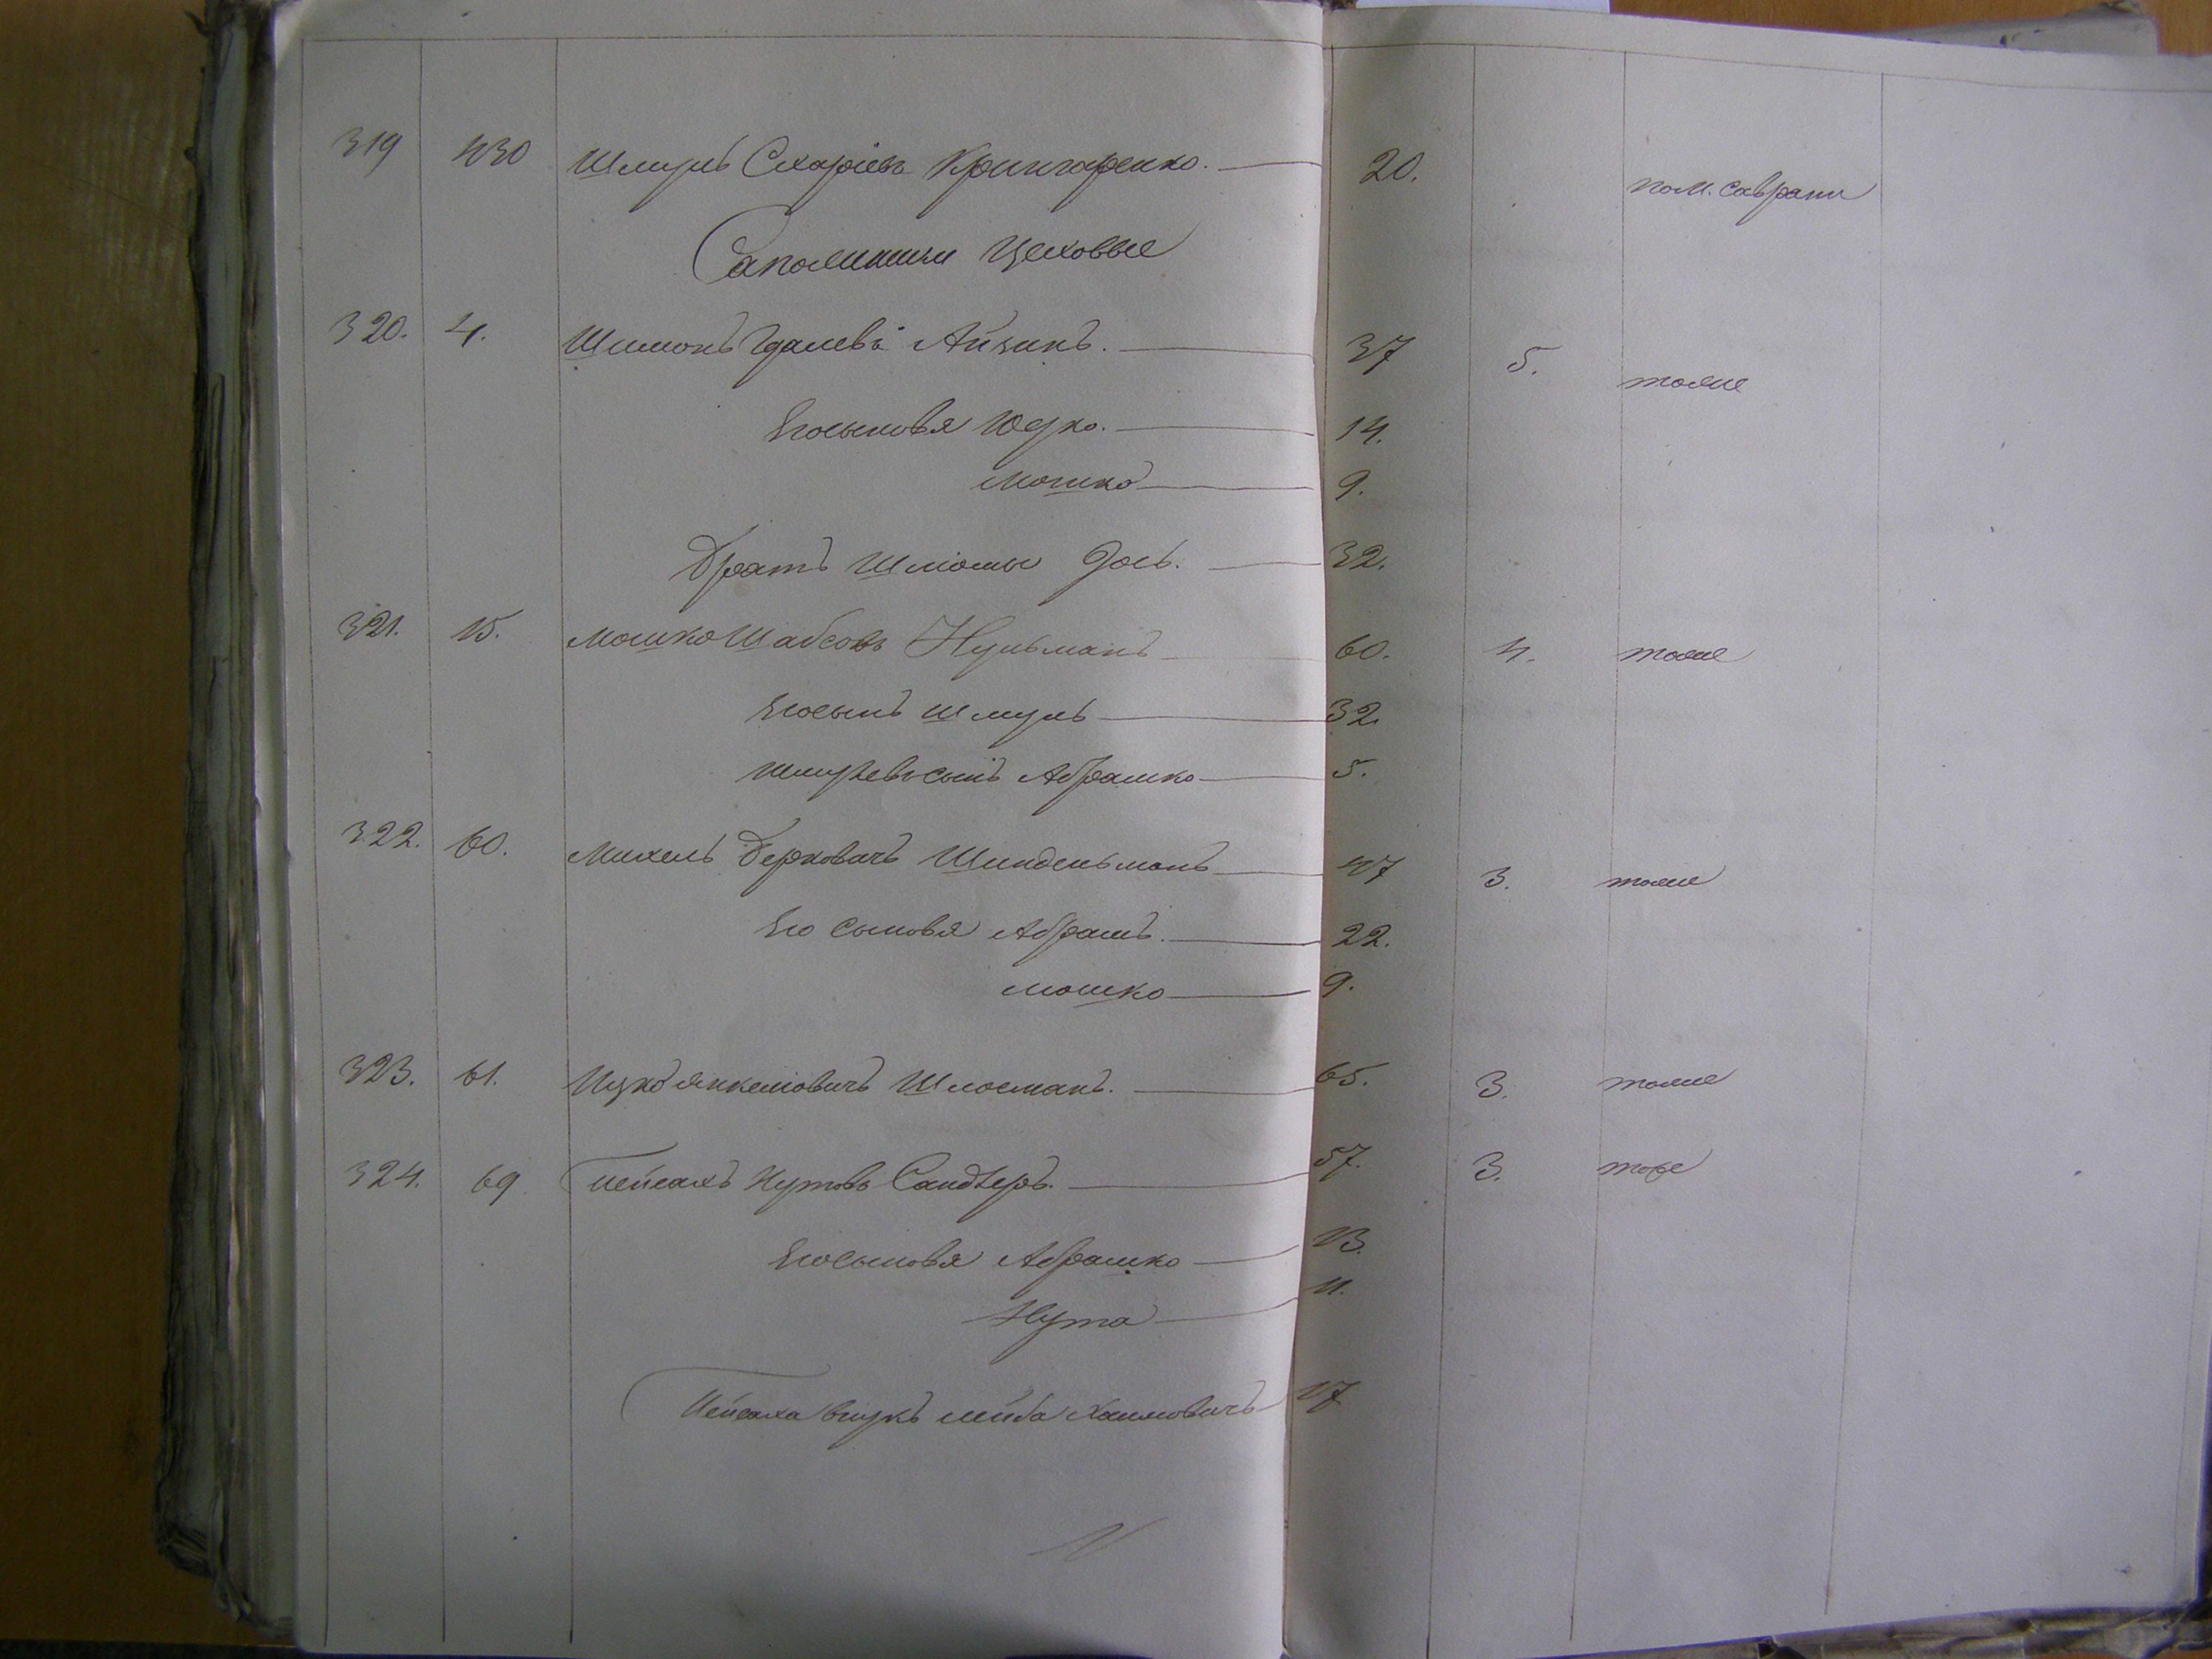 319 430 Шмуль Сухаріевъ Кришгаренко. 20. по м. Саврани
Сапожники Цеховые
320. 4. Шимонъ Гдалевъ Айзикъ. 37 5. тоже
Его сыновья Юдко. 14.
Мошко 9.
Братъ Шліомы Іось. 32.
321. 15. Мошко Шабсовъ Нульманъ 60. 4. тоже
Его сынъ Шмуль 32.
Шмулевъ сынъ Абрашко 5.
322. 60. Михель Берковичъ Шиндельманъ 47 3. тоже
Его сыновья Абрамъ. 22.
Мошко 9.
323. 61. Ицко Янкелiовичъ Шлосманъ. 65. 3. тоже
324. 69 Пейсахъ Нутовъ Сандлеръ. 57. 3. тоже
Его сыновья Абрашко 13.
Нута 11.
Пейсаха внукъ Лейба Хаимовичъ 17